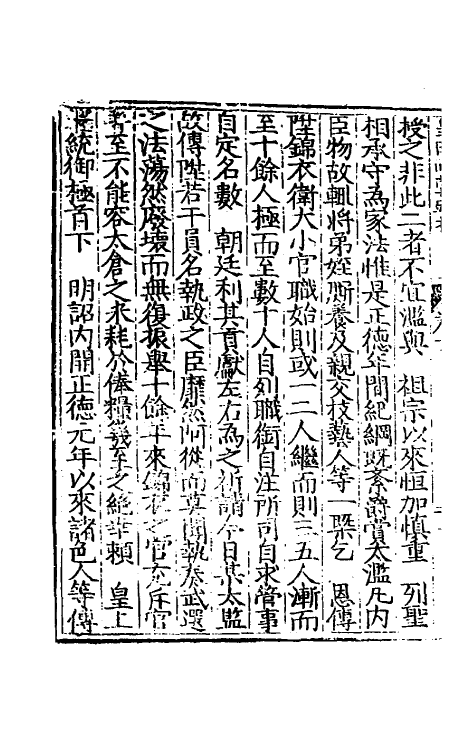 授之非此二者不宜濫與　祖宗以來恒加慎重　列聖
相承守為家法惟是正德年間紀綱既紊爵賞太濫凡內
臣物故輒將弟姪廝養及親交技藝人等一槩乞　恩傳
陞錦衣衛大小官職始則或一二人繼而則三五人漸而
至十餘人極而至數十人自列職銜自注所司自求管事
自定名數　朝廷利其貢獻左右為之祈請今日某太監
故傳陞若干員名執政之臣靡然阿從而莫聞執奏武選
之法蕩然廢壞而無復振舉十餘年來錦衣之官充斥官
署至不能容太倉之米耗於俸糧幾至乏絕幸賴　皇上
統御極首下　明詔內開正德元年以來諸色人等傳